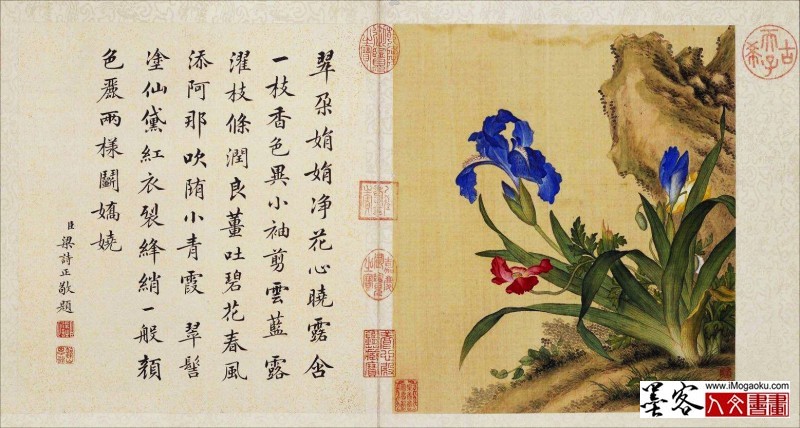 翠朵娟娟净花心曉露含
一枝香色異小袖剪雲藍露
濯枝條潤良薑吐碧花春風
添阿那吹小青霞 翠髻
塗仙黛紅衣裂絳綃一般顏
色麗兩樣鬭嬌嬈
臣梁詩正敬題
古希天子
墨客
www.iMogaoku.com
人文書畫